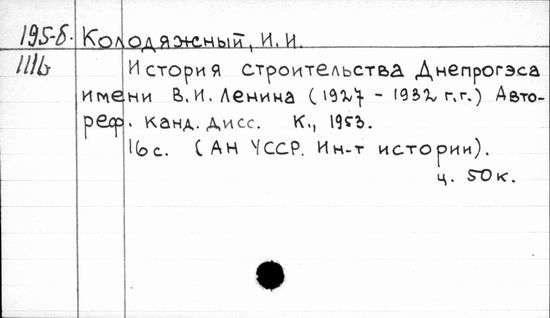 195-б. Колодяжный, И.И.
111b История строительства Днепрогэса
имени В.И. Ленина (1927 - 1932 г.г.) Авто-
реф. канд. дисс. К., 1953.
16 с. (АН УССР. Ин-т истории).
ц. 50 к.